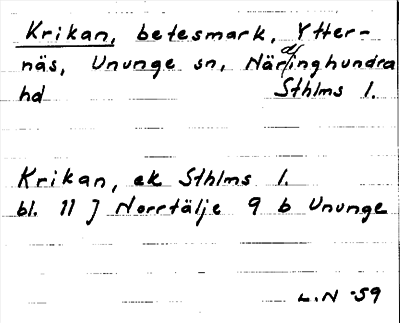 Krikan, betesmark, Ytter-
näs, Ununge sn, Närdinghundra
hd Sthlms l.
Krikan, ek Sthlms l.
bl. 11 J Norrtälje 9 b Ununge
L.N -59